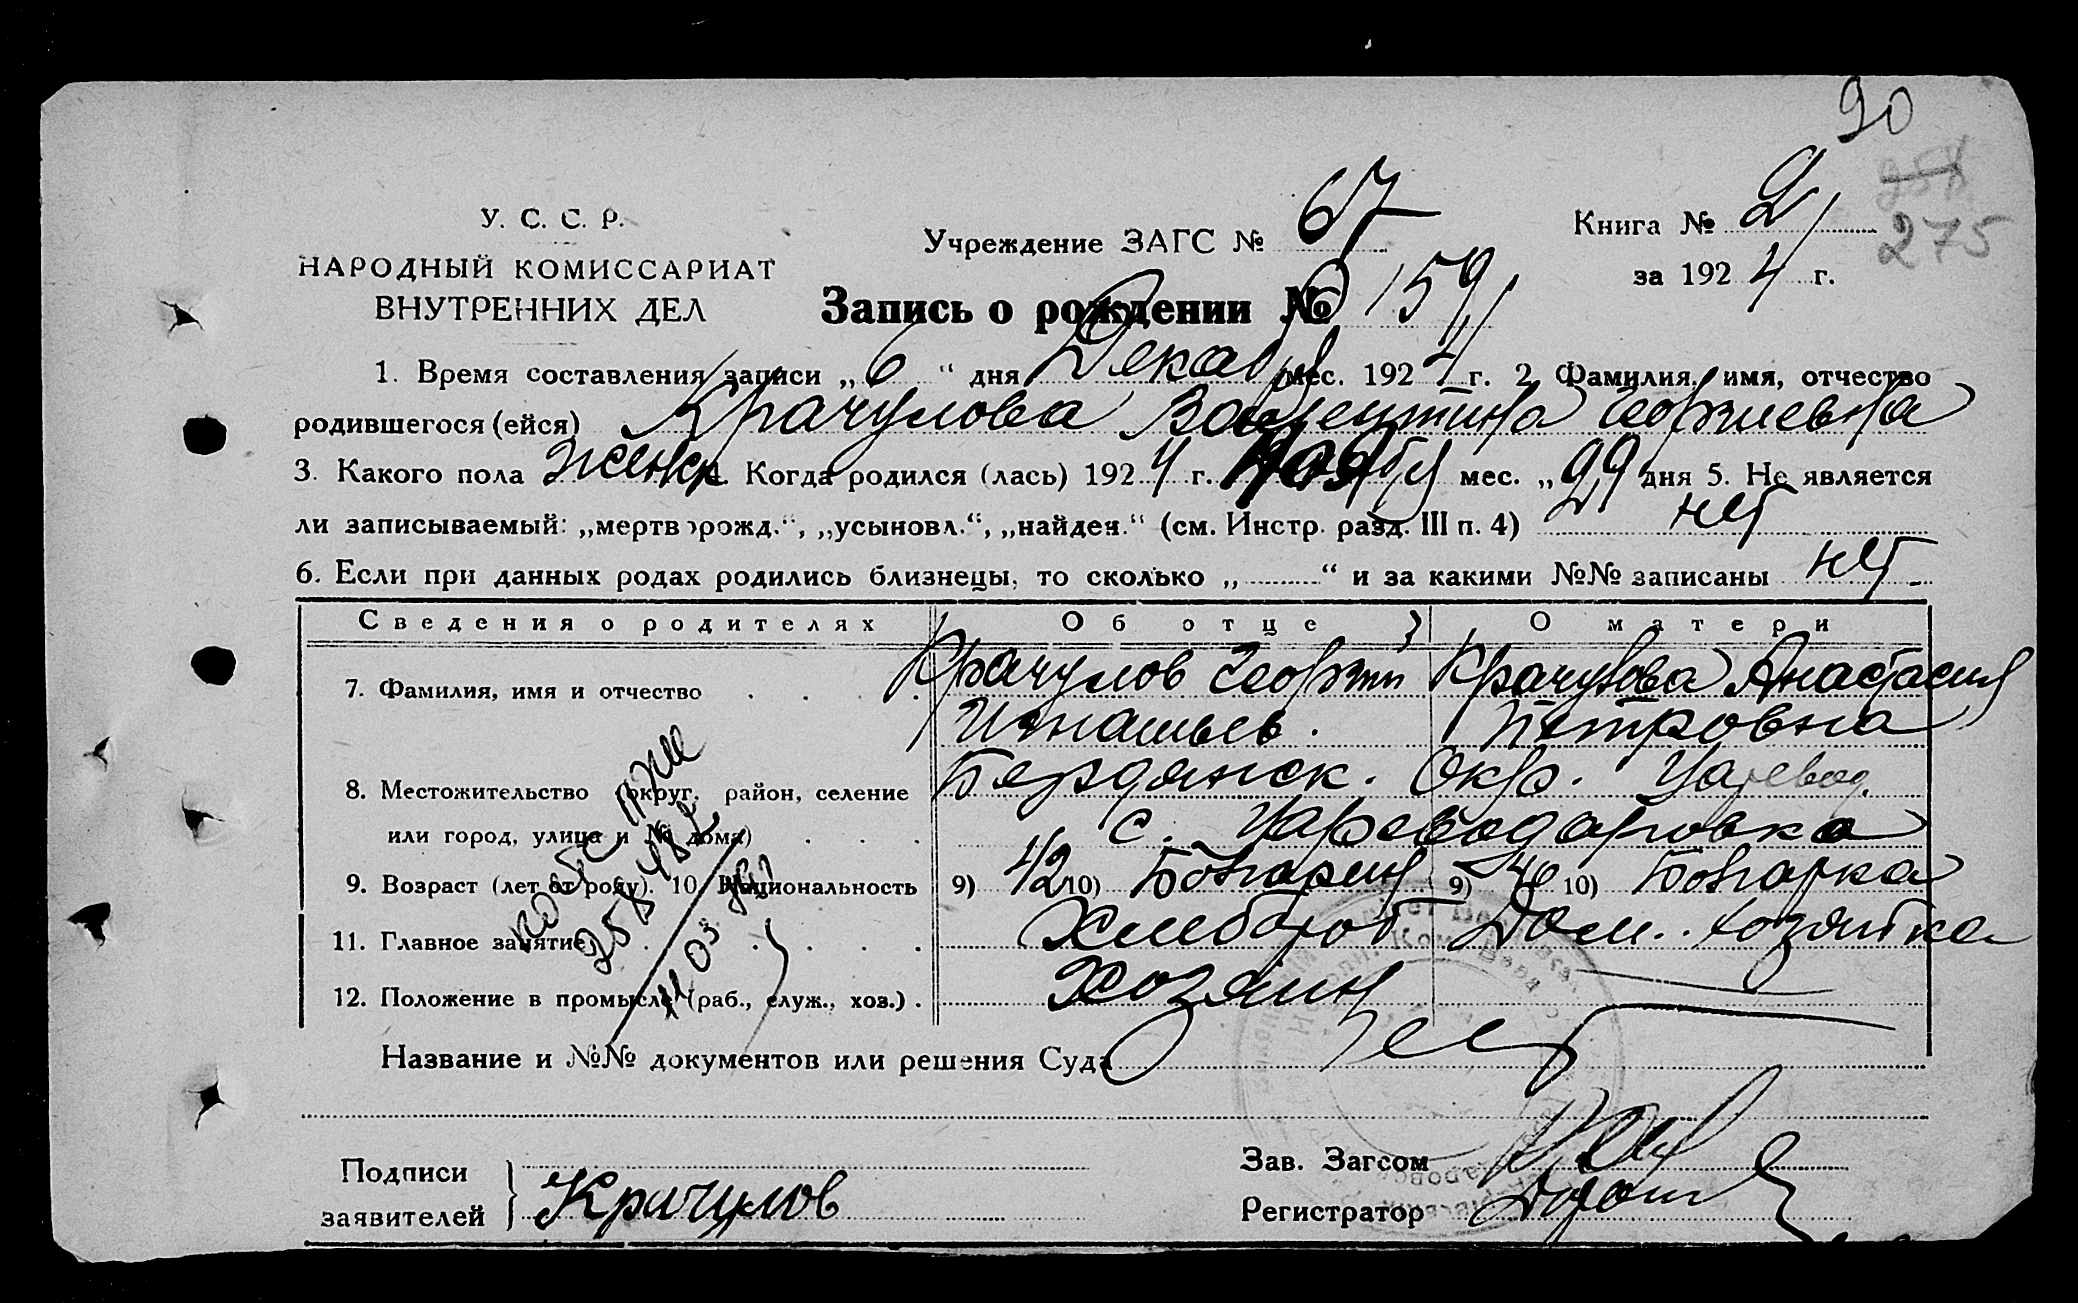 90
258
275
У. С. С. Р.
НАРОДНЫЙ КОМИССАРИАТ
ВНУТРЕННИХ ДЕЛ
Учреждение ЗАГС № 67
Книга № 2
за 1924 г.
Запись о рождении № 159
1. Время составления записи „6“ дня Декабря мес. 1924 г. 2. Фамилия, имя, отчество
родившегося (ейся) Крачулова Валентина Георгиевна
3. Какого пола женск 4. Когда родился (лась) 1924 г. Ноября мес. „29 дня 5. Не является
ли записываемый: „мертворожд.“, „усыновл.“, „найден.“ (см. Инстр. разд. III п. 4) нет
6. Если при данных родах родились близнецы, то сколько „ “ и за какими №№ записаны нет
Сведения о родителях Об отце О матери
7. Фамилия, имя и отчество Крачулов Георгий Крачулова Анастасия
Игнатьев. Петровна
8. Местожительство (округ, район, селение Бердянск. Окр. Царевод.
или город, улица и № дома) с. Цареводаровка
9. Возраст (лет от роду). 10. Национальность 9) 42 10) Болгарин 9) 40 10) Болгарка
11. Главное занятие Хлебороб Дом. хозяйка
12. Положение в промысле (раб., служ., хоз.) Хозяин
Название и №№ документов или решения Суда Нет
Подписи
заявителей Крачулов
Зав. Загсом
Регистратор